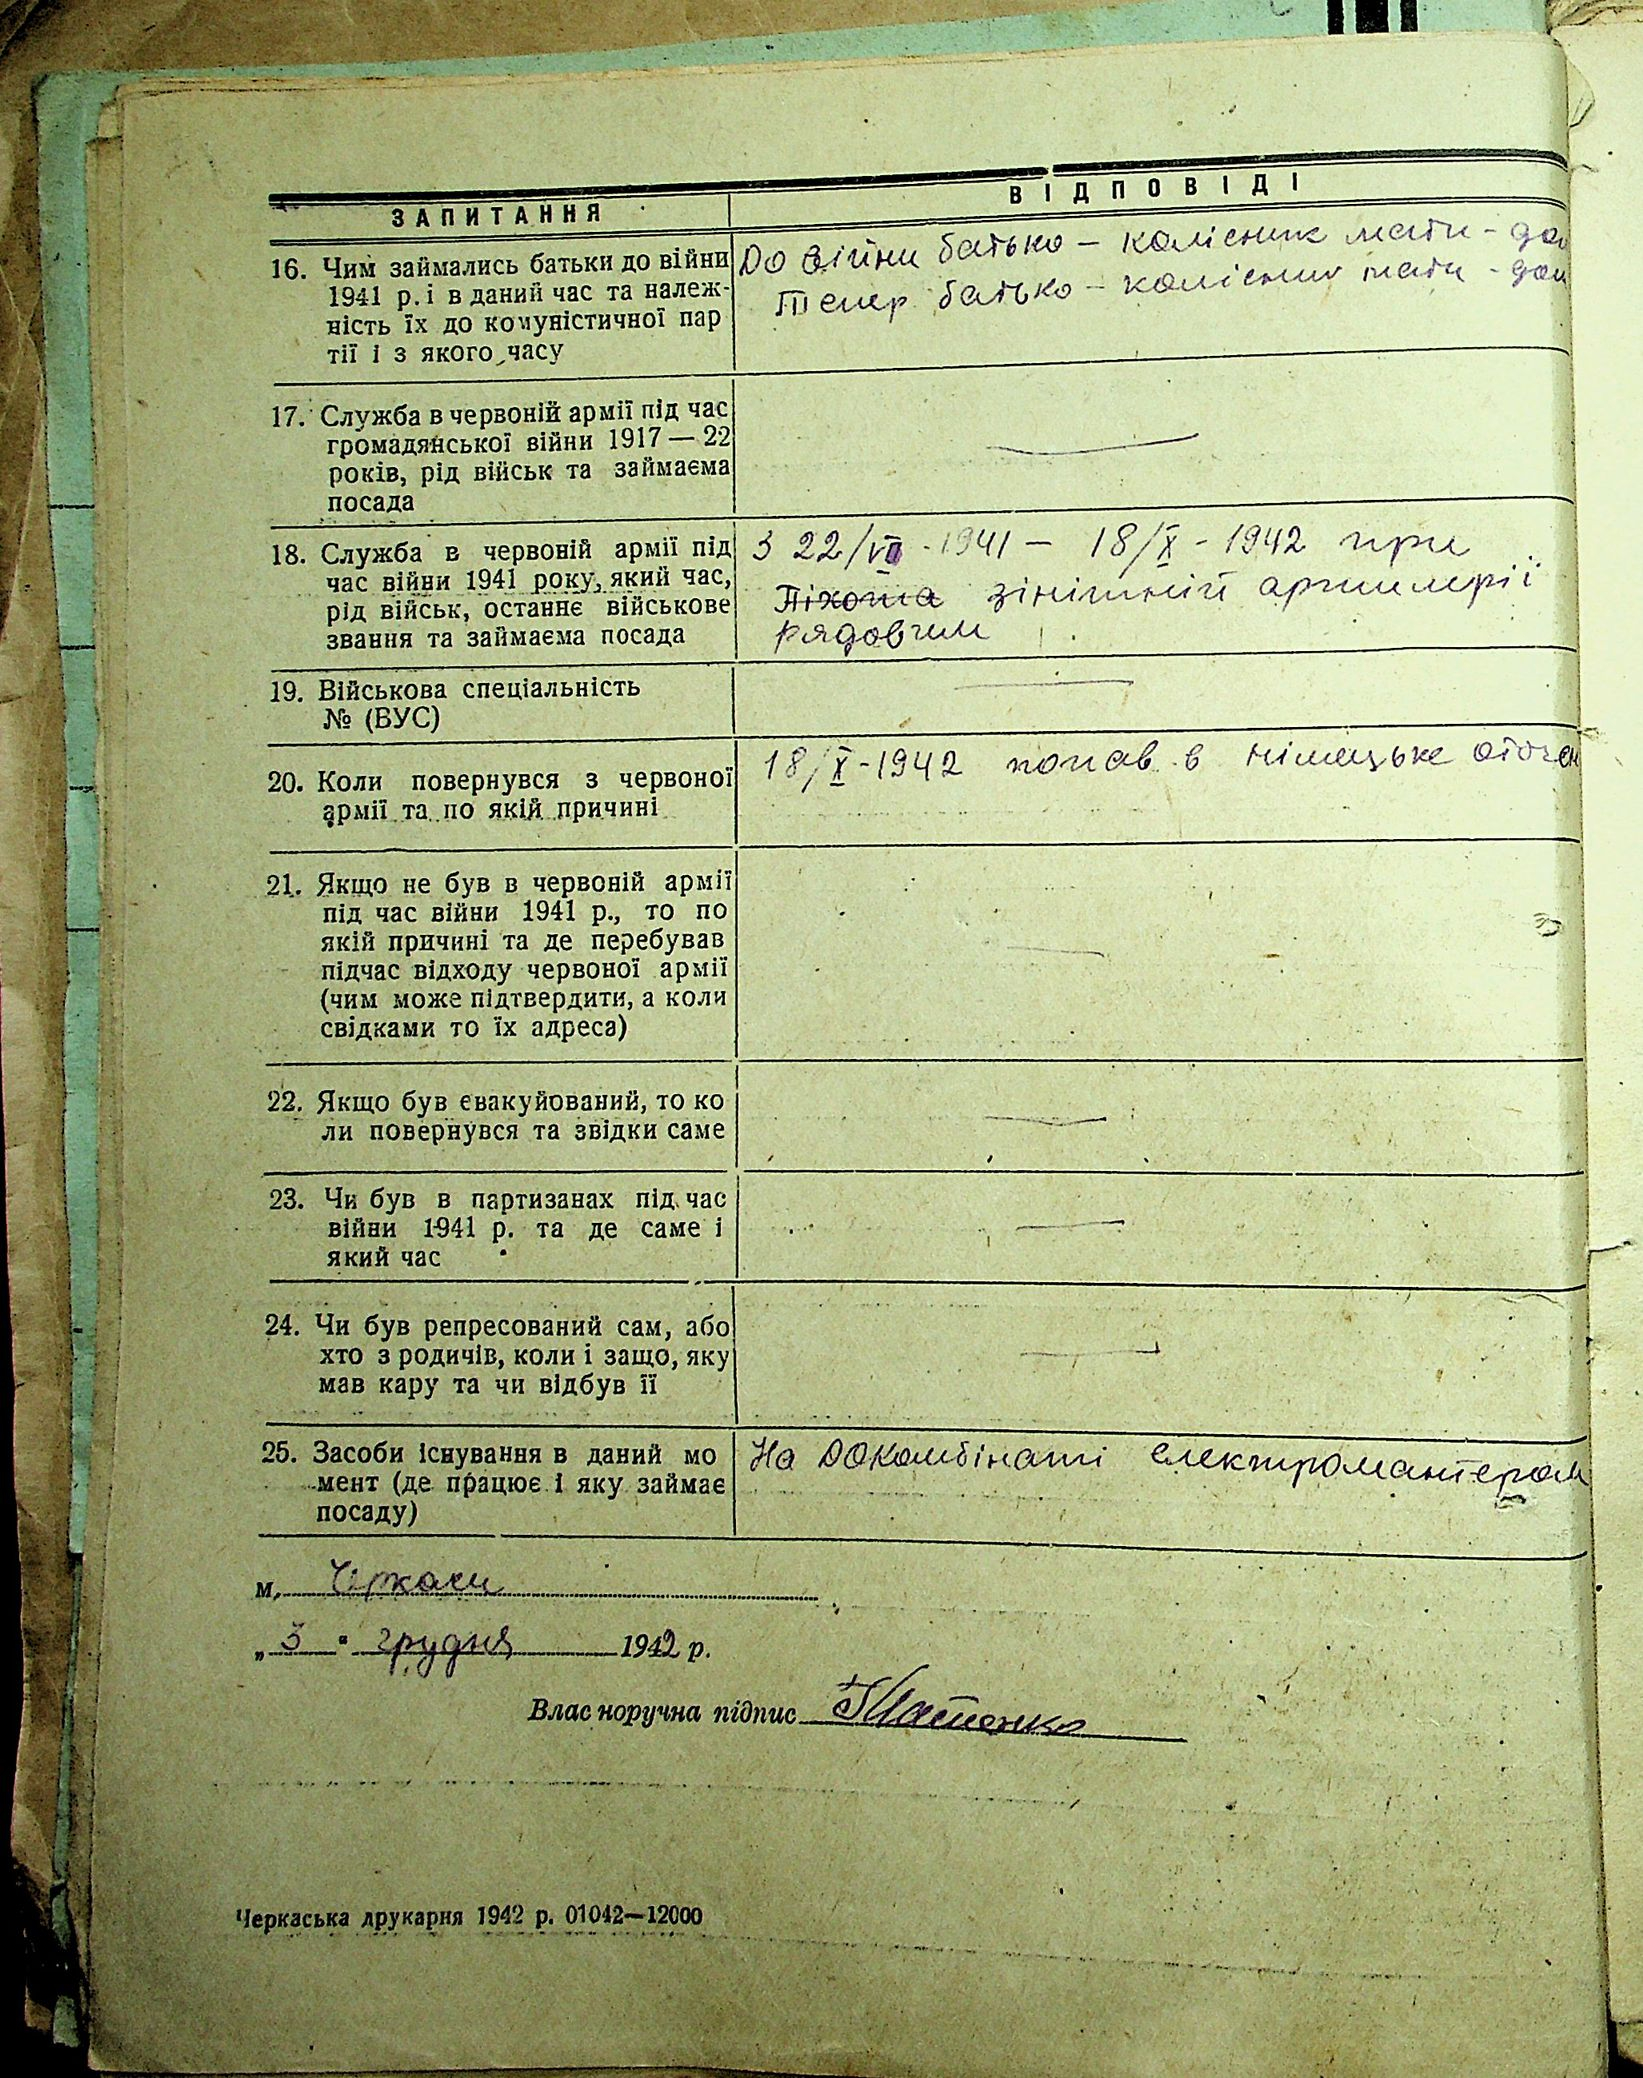 ЗАПИТАННЯ
ВІДПОВІДІ
16. Чим займались батьки до війни
1941 р. і в даний час та належ-
ність їх до комуністичної пар
тії і з якого часу
До війни батько – колісник мати – до
Тепер батько – колісник мати – дом
17. Служба в червоній армії під час
громадянської війни 1917 — 22
років, рід військ та займаєма
посада
18. Служба в червоній армії під
час війни 1941 року, який час,
рід військ, останнє військове
звання та займаєма посада
З 22/VII - 1941 – 18/X - 1942 при
Піхота зінітній артилерії
рядовим
19. Військова спеціальність
№ (ВУС)
20. Коли повернувся з червоної
армії та по якій причині
18/X - 1942 попав в німецьке оточен
21. Якщо не був в червоній армії
під час війни 1941 р., то по
якій причині та де перебував
підчас відходу червоної армії
(чим може підтвердити, а коли
свідками то їх адреса)
22. Якщо був евакуйований, то ко
ли повернувся та звідки саме
23. Чи був в партизанах під час
війни 1941 р. та де саме і
який час
24. Чи був репресований сам, або
хто з родичів, коли і защо, яку
мав кару та чи відбув її
25. Засоби існування в даний мо
мент (де працює і яку займає
посаду)
На ДОКомбінаті електромантером
м. Черкаси
„ 3 " грудня 1942 р.
Власноручна підпис
Черкаська друкарня 1942 р. 01042—12000